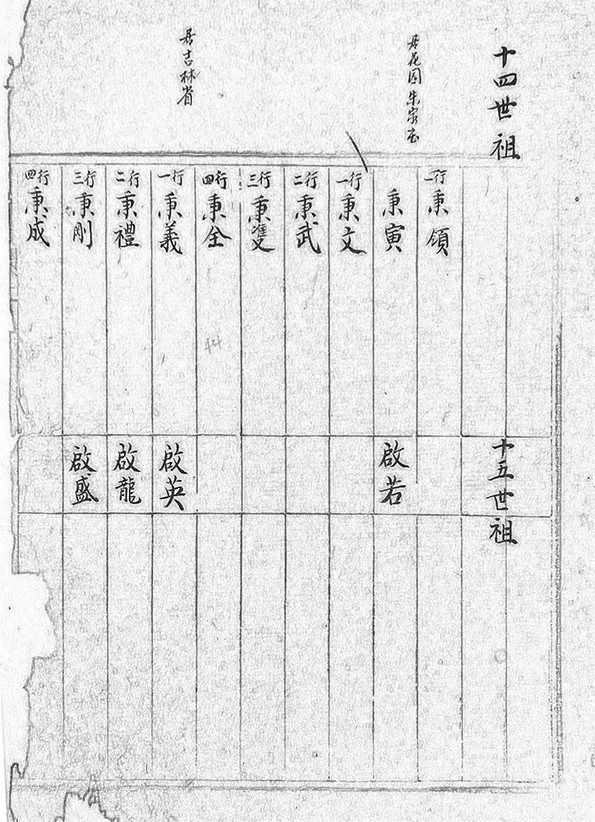 十四世祖
十五世祖
居花园朱家
行二秉領
秉寅
啟若
行一秉文
行二秉武
行三秉雙
行四秉全
居吉林省
行一秉義
啟英
行二秉禮
啟龍
行三秉剛
啟盛
行四秉成